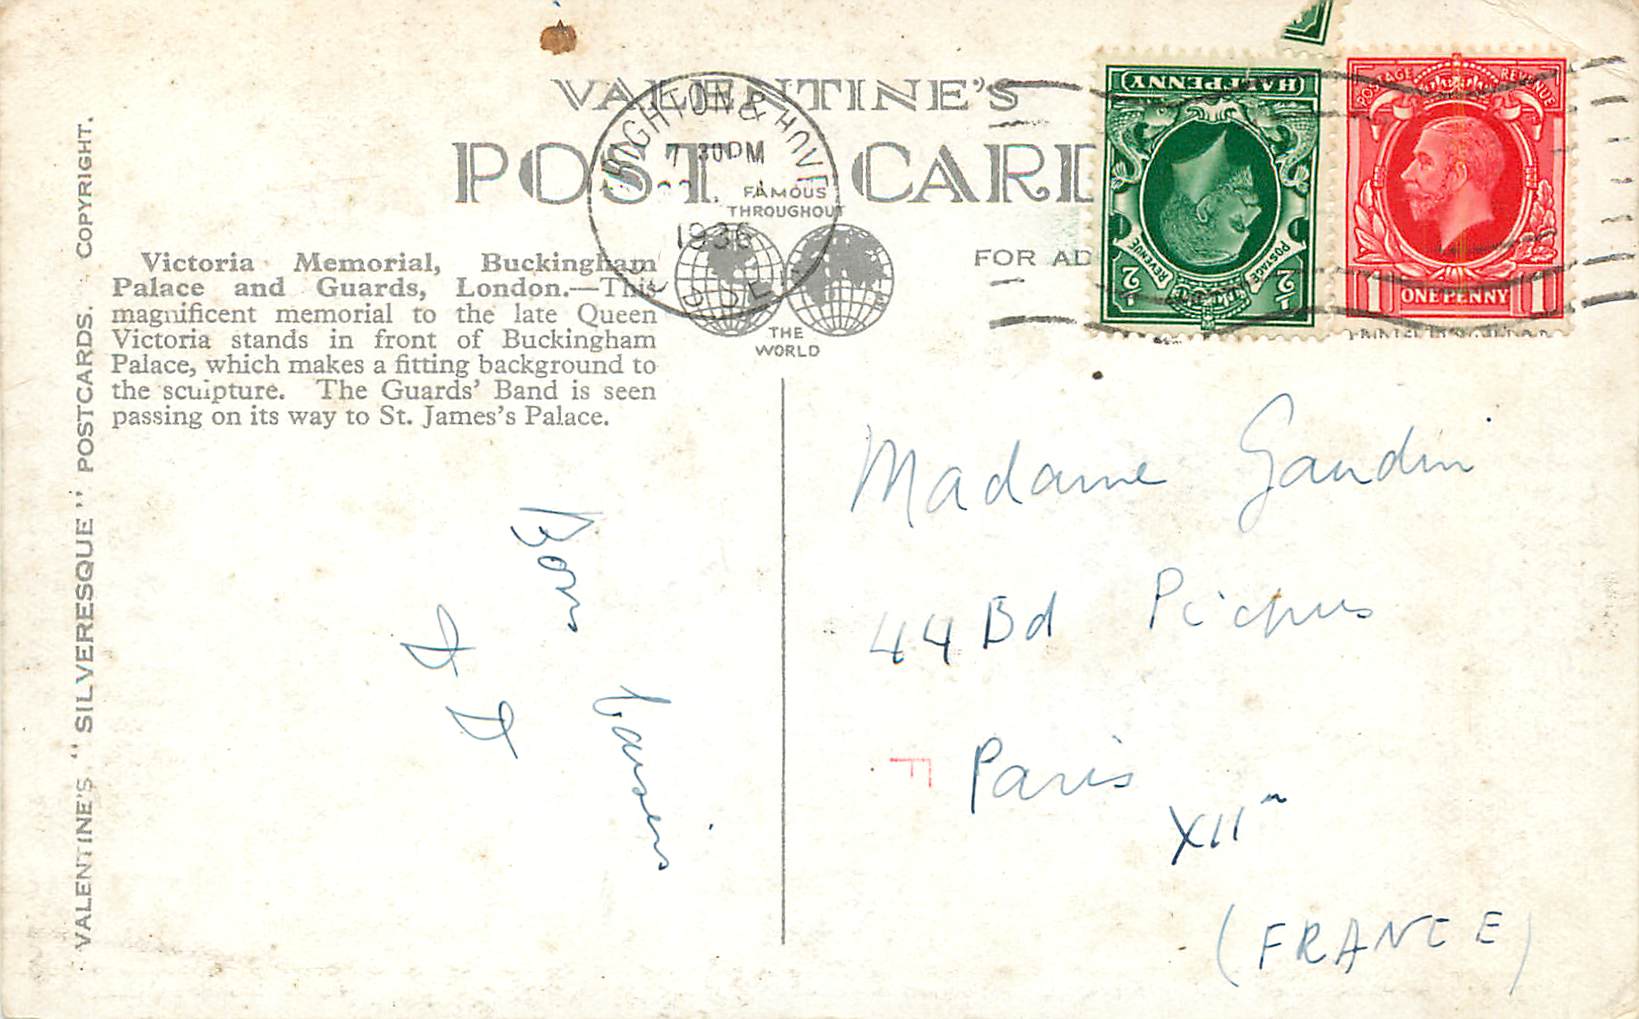 VALENTINE'S
POST CARD
FAMOUS
THROUGHOUT
THE
WORLD
FOR AD
BRIGHTON & HOVE
7 30 PM
1936
SUSSEX
HALFPENNY
POSTAGE
REVENUE
½
½
POSTAGE
REVENUE
1
ONE PENNY
1
Victoria Memorial, Buckingham
Palace and Guards, London.—This
magnificent memorial to the late Queen
Victoria stands in front of Buckingham
Palace, which makes a fitting background to
the sculpture. The Guards' Band is seen
passing on its way to St. James's Palace.
VALENTINE'S "SILVERESQUE" POSTCARDS. COPYRIGHT.
Bons baisers
Madame Gaudin
44 Bd Picpus
Paris
XII
(FRANCE)
F